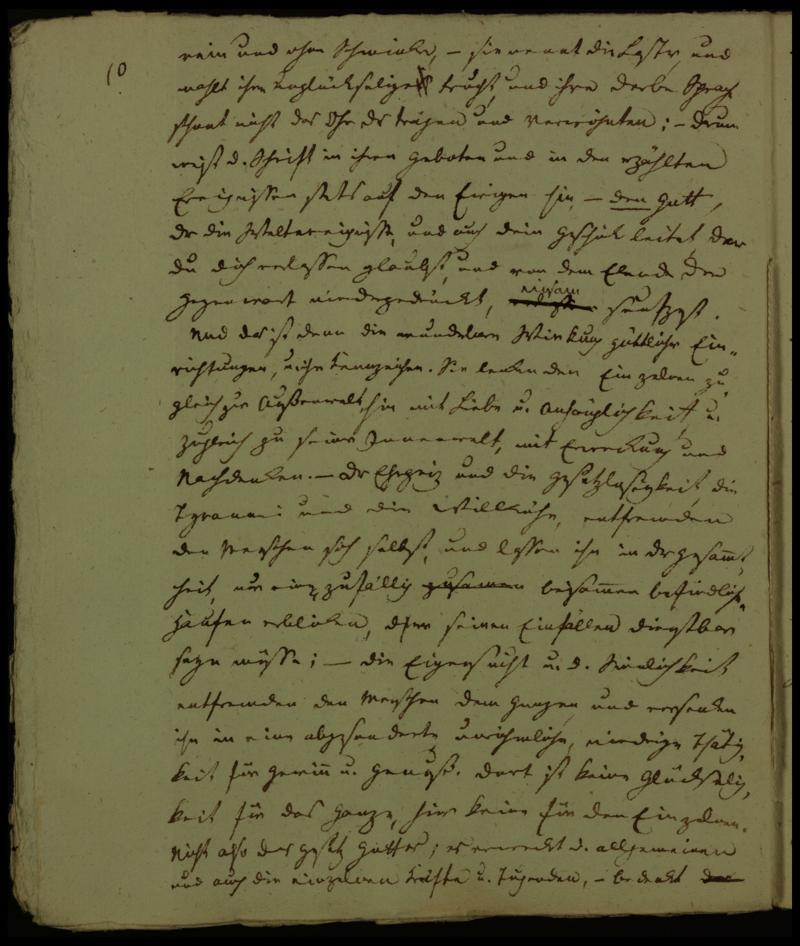 10
rein und ohne Schminke, – sie nennt die Laster, und
mahlt ihre unglückselige Frucht, und ihre derbe Sprache
schont nicht das Ohr des trägen und verwöhnten; – Drum
weist d. Schrift in ihren Geboten und in den erzählten
Ereignissen stets auf den Einigen hin, – den Gott,
der die Weltereignisse, und auch dein Geschick leitet, der
du dich verlassen glaubst, und von dem Elende der
Gegenwart niedergedrückt, einsam seufzest.
Und das ist denn die wunderbare Wirkung göttlicher Ein-
richtungen, u. ihr Kennzeichen. Sie lenken den Einzelnen zu-
gleich zur Außenwelt hin mit Liebe u. Anhänglichkeit, u.
zugleich zu seiner Innenwelt, mit Erweckung und
Nachdenken. – Der Ehrgeiz und die Gesetzlosigkeit, die
Tyrannei und die Willkühr, entfremden
den Menschen sich selbst, und lassen ihn in der Gesammt-
heit, nur einen zufällig zusammen beisammen befindlichen
Haufen erblicken, der seinen Einfällen dienstbar
seyn müsse; – die Eigensucht u. d. Sinnlichkeit
entfremden den Menschen dem Ganzen, und versenken
ihn in eine abgesonderte, unrühmliche, niedrige Thätig-
keit für Gewinn u. Genuß. Dort ist keine Glückselig-
keit für das Ganze, hier keine für den Einzelnen.
Nicht also das Gesetz Gottes; es erweckt d. allgemeinen
und auch die einzelnen Kräfte u. Tugenden, – bedenkt